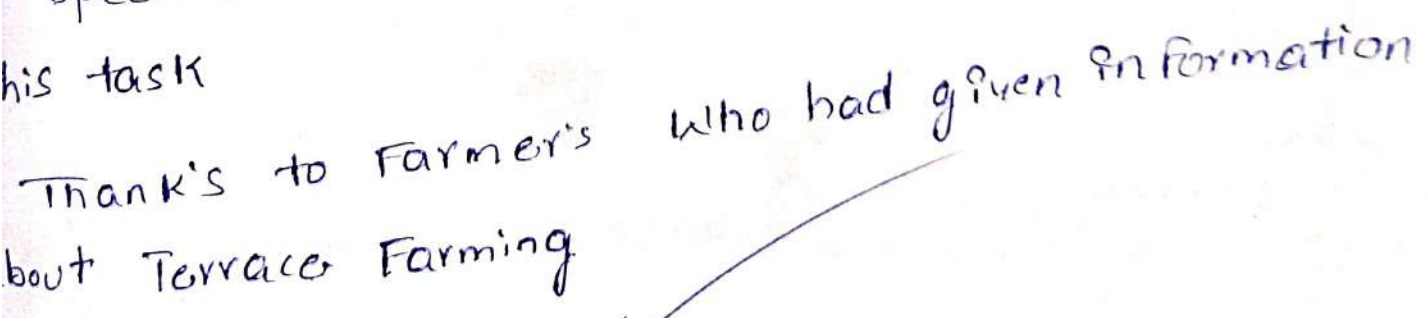 his task
Thank's to Farmer's Who had given information
bout Terrace Farming